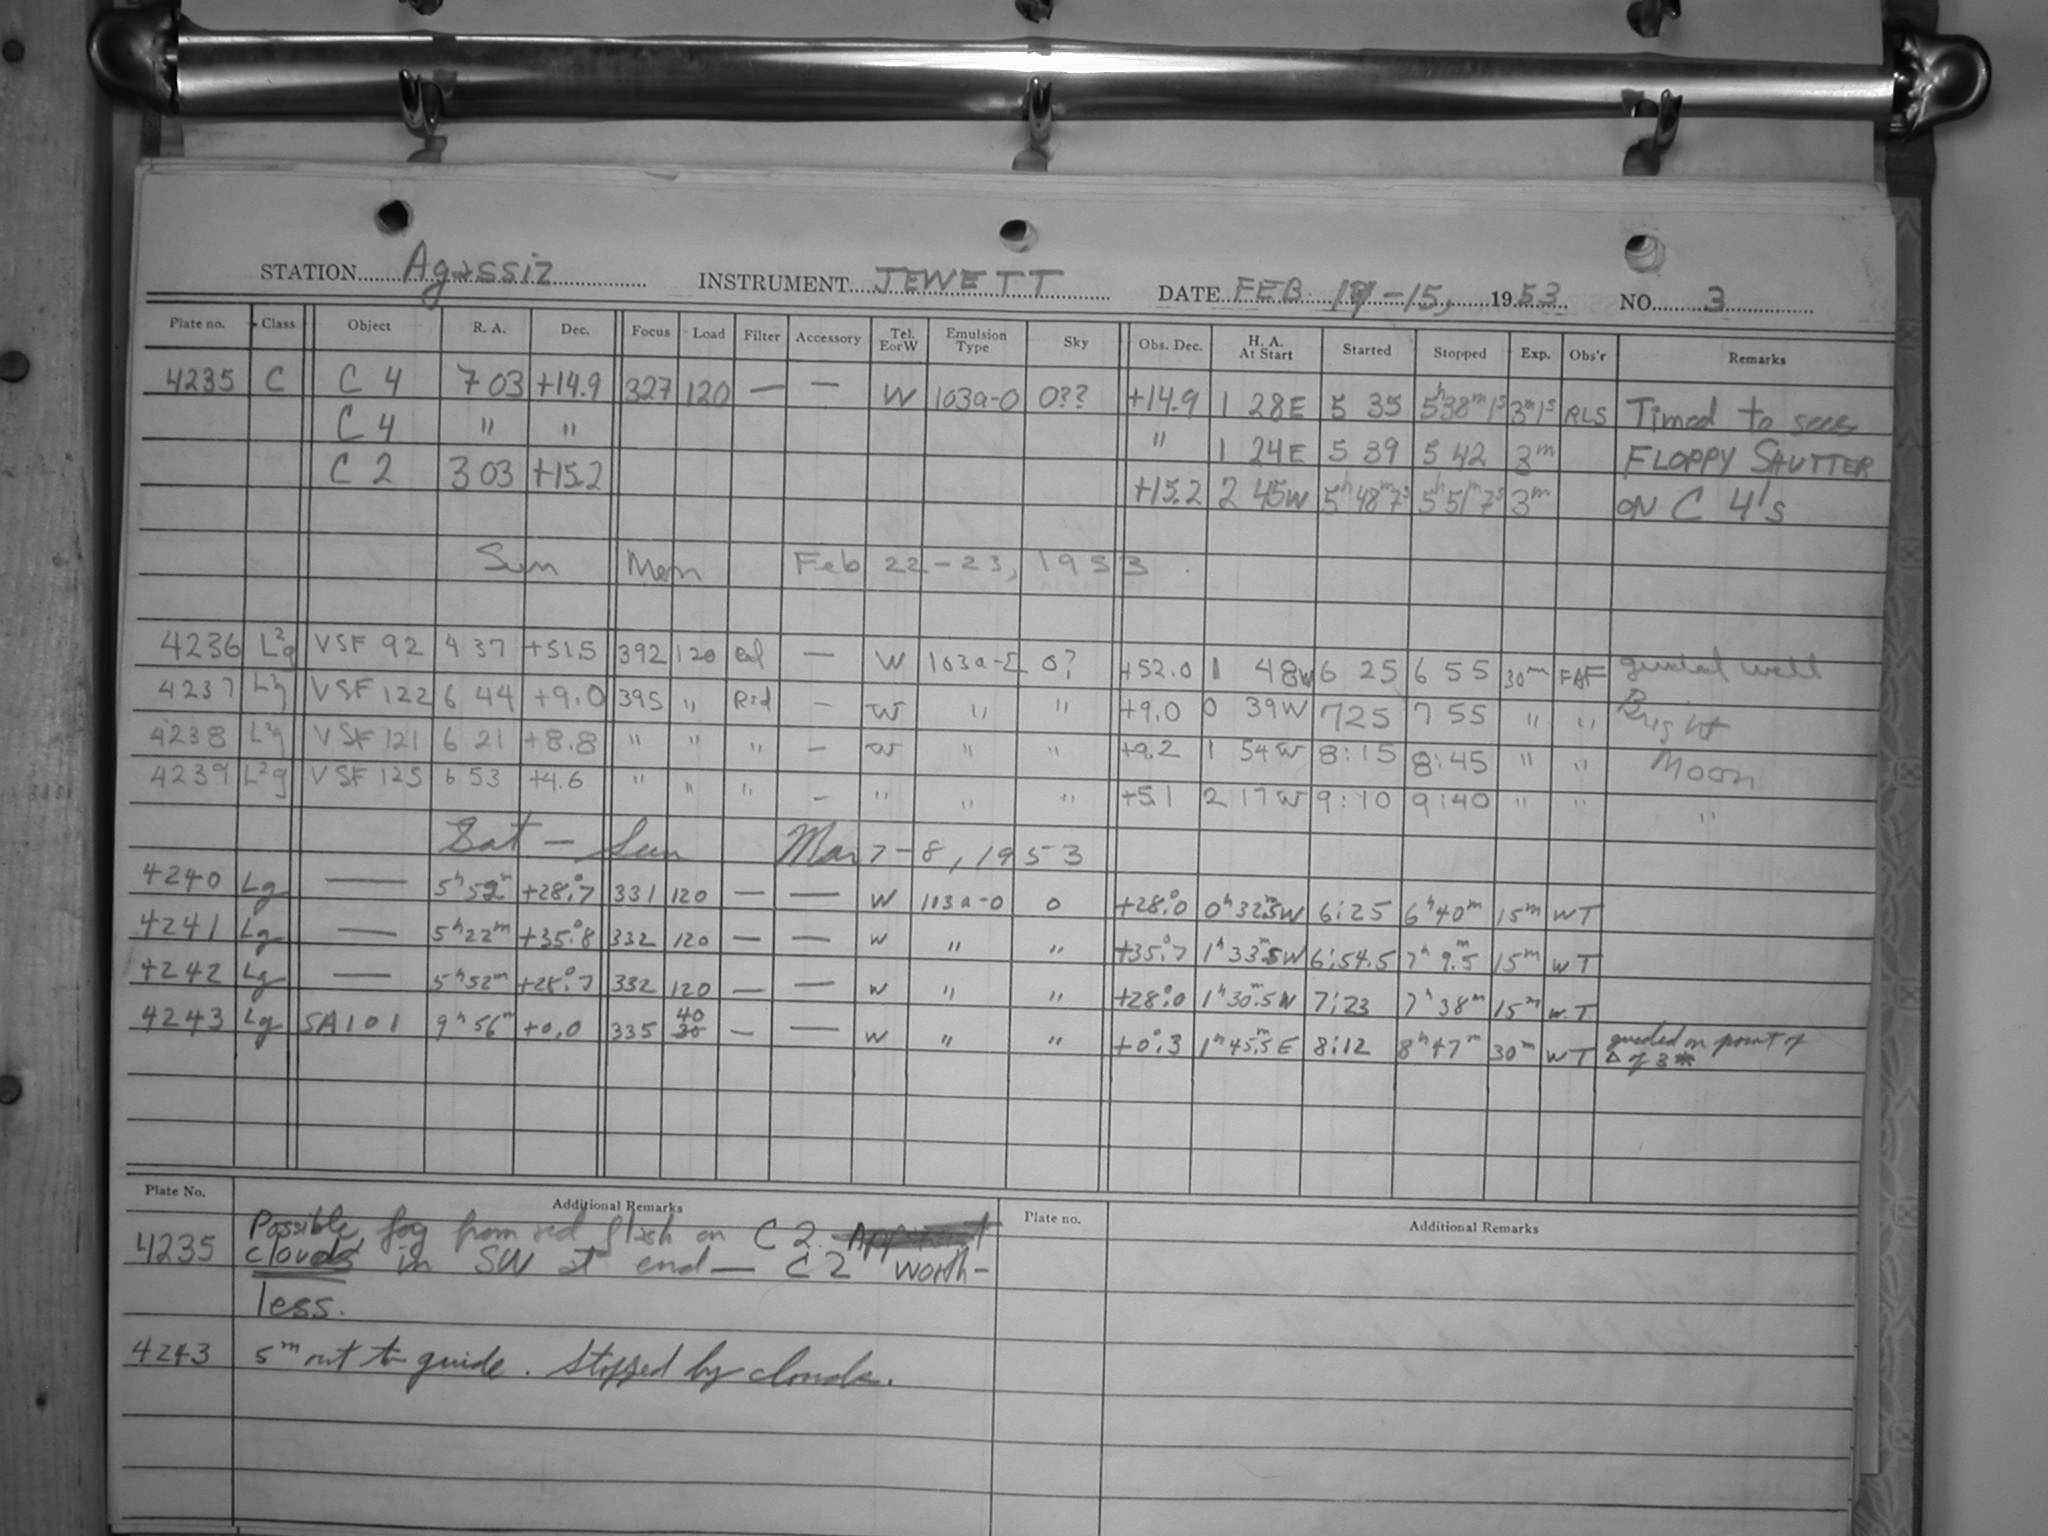 STATION Agassiz INSTRUMENT JEWETT DATE FEB 14-15, 1953 NO 3
Plate no. Class Object R. A. Dec. Focus Load Filter Accessory Tel. E or W Emulsion Type Sky Obs. Dec. H. A. At Start Started Stopped Exp. Obs'r Remarks
4235 C C 4 7 03 +14.9 327 120 — — W 103a-O 0?? +14.9 1 28E 5 35 5h38m1s 3m1s RLS Timed to
C 4 " " " 1 24E 5 39 5 42 3m FLOPPY SHUTTER
C 2 3 03 +15.2 +15.2 2 45W 5h48m7s 5h51m7s 3m ON C 4's
Sun Mon Feb 22-23, 1953
4236 L2g VSF 92 4 37 +51.5 392 120 Red — W 103a-E 0? +52.0 1 48W 6 25 6 55 30m FAF guided well
4237 L2g VSF 122 6 44 +9.0 395 " Red — W " " +9.0 0 39W 7 25 7 55 " " Bright
4238 L2g VSF 121 6 21 +8.8 " " " — W " " +9.2 1 54W 8:15 8:45 " " Moon
4239 L2g VSF 125 6 53 +4.6 " " " — " " " +5.1 2 17W 9:10 9:40 " " "
Sat — Sun Mar 7-8, 1953
4240 Lg — 5h52m +28°.7 331 120 — — W 103a-O 0 +28°.0 0h32m.5W 6:25 6h40m 15m WT
4241 Lg — 5h22m +35°.8 332 120 — — W " " +35°.7 1h33m.5W 6:54.5 7h9m.5 15m WT
4242 Lg — 5h52m +28°.7 332 120 — — W " " +28°.0 1h30m.5W 7:23 7h38m 15m W.T.
4243 Lg SA101 9h56m +0.0 335 40 30 — — W " " +0°.3 1h45m.5E 8:12 8h47m 30m WT guided on point of
Δ of 3*
Plate No. Additional Remarks Plate no. Additional Remarks
4235 Possible fog from red flash on C 2.
clouds in SW at end — C 2 worth-
less.
4243 5m out to guide. Stopped by clouds.